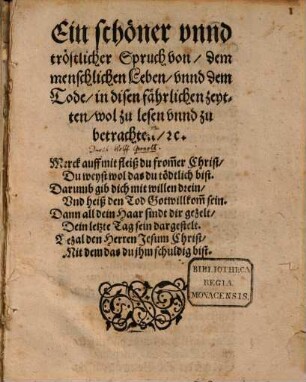 1
Ein schöner vnnd
tröstlicher Spruch von/ dem
menschlichen Leben/ vnnd dem
Tode/ in disen fährlichen zeyt-
ten/ wol zu lesen vnnd zu
betrachten/ ꝛc.
Merck auff mit fleiß du fromer Christ/
Du weyst wol das du tödtlich bist.
Darumb gib dich mit willen drein/
Vnd heiß den Tod Gotwillkom̃ sein.
Dann all dein Haar sindt dir gezelt/
Dein letzte Tag sein dargestelt.
Bezal den Herren Jesum Christ/
Mit dem das du jhm schuldig bist.
BIBLIOTHECA
REGIA
MONACENSIS.